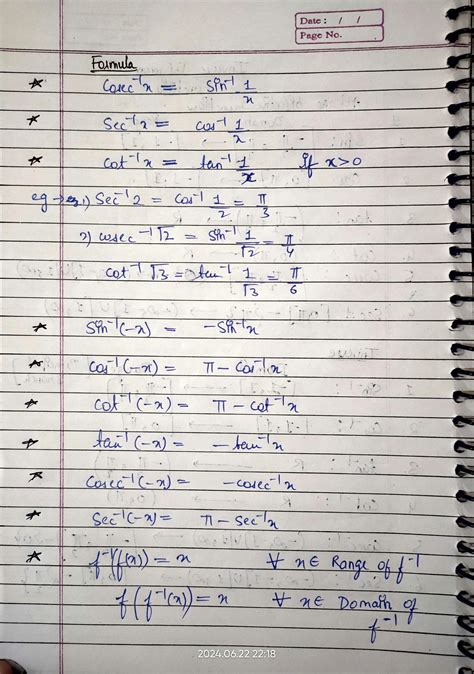 Date : / /
Page No.
Formula
* Cosec⁻¹x = Sin⁻¹ 1/x
* Sec⁻¹x = cos⁻¹ 1/x
* Cot⁻¹x = tan⁻¹ 1/x if x>0
eg → eg.1) Sec⁻¹2 = Cos⁻¹ 1/2 = π/3
2) cosec⁻¹√2 = Sin⁻¹ 1/√2 = π/4
cot⁻¹√3 = tan⁻¹ 1/√3 = π/6
* Sin⁻¹(-x) = -Sin⁻¹x
* Cos⁻¹(-x) = π - Cos⁻¹x
* Cot⁻¹(-x) = π - Cot⁻¹x
* tan⁻¹(-x) = -tan⁻¹x
* Cosec⁻¹(-x) = -cosec⁻¹x
* Sec⁻¹(-x) = π - Sec⁻¹x
* f⁻¹(f(x)) = x ∀ x ∈ Range of f⁻¹
f(f⁻¹(x)) = x ∀ x ∈ Domain of
f⁻¹
2024.06.22 22:18